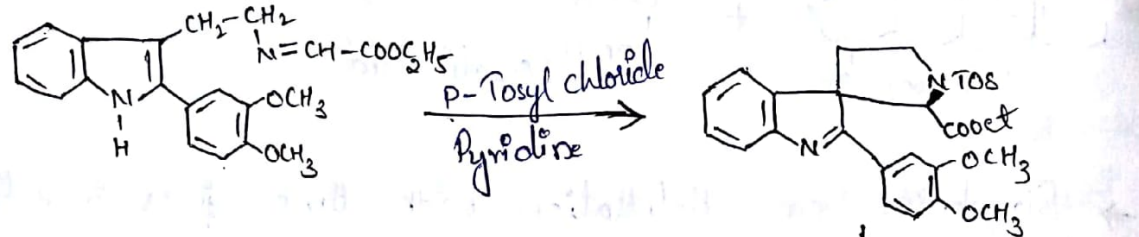 CH2-CH2
N=CH-COOC2H5
N
H
OCH3
OCH3
p-Tosyl chloride
Pyridine
N TOS
COOEt
N
OCH3
OCH3